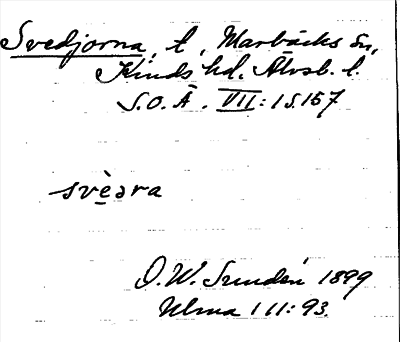 Svedjorna, t, Marbäcks sn,
Kinds hd. Älvsb. l.
S.O.Ä. VII:1 s.157
svèəra
O.W. Sundén 1899
Ulma 111:93.